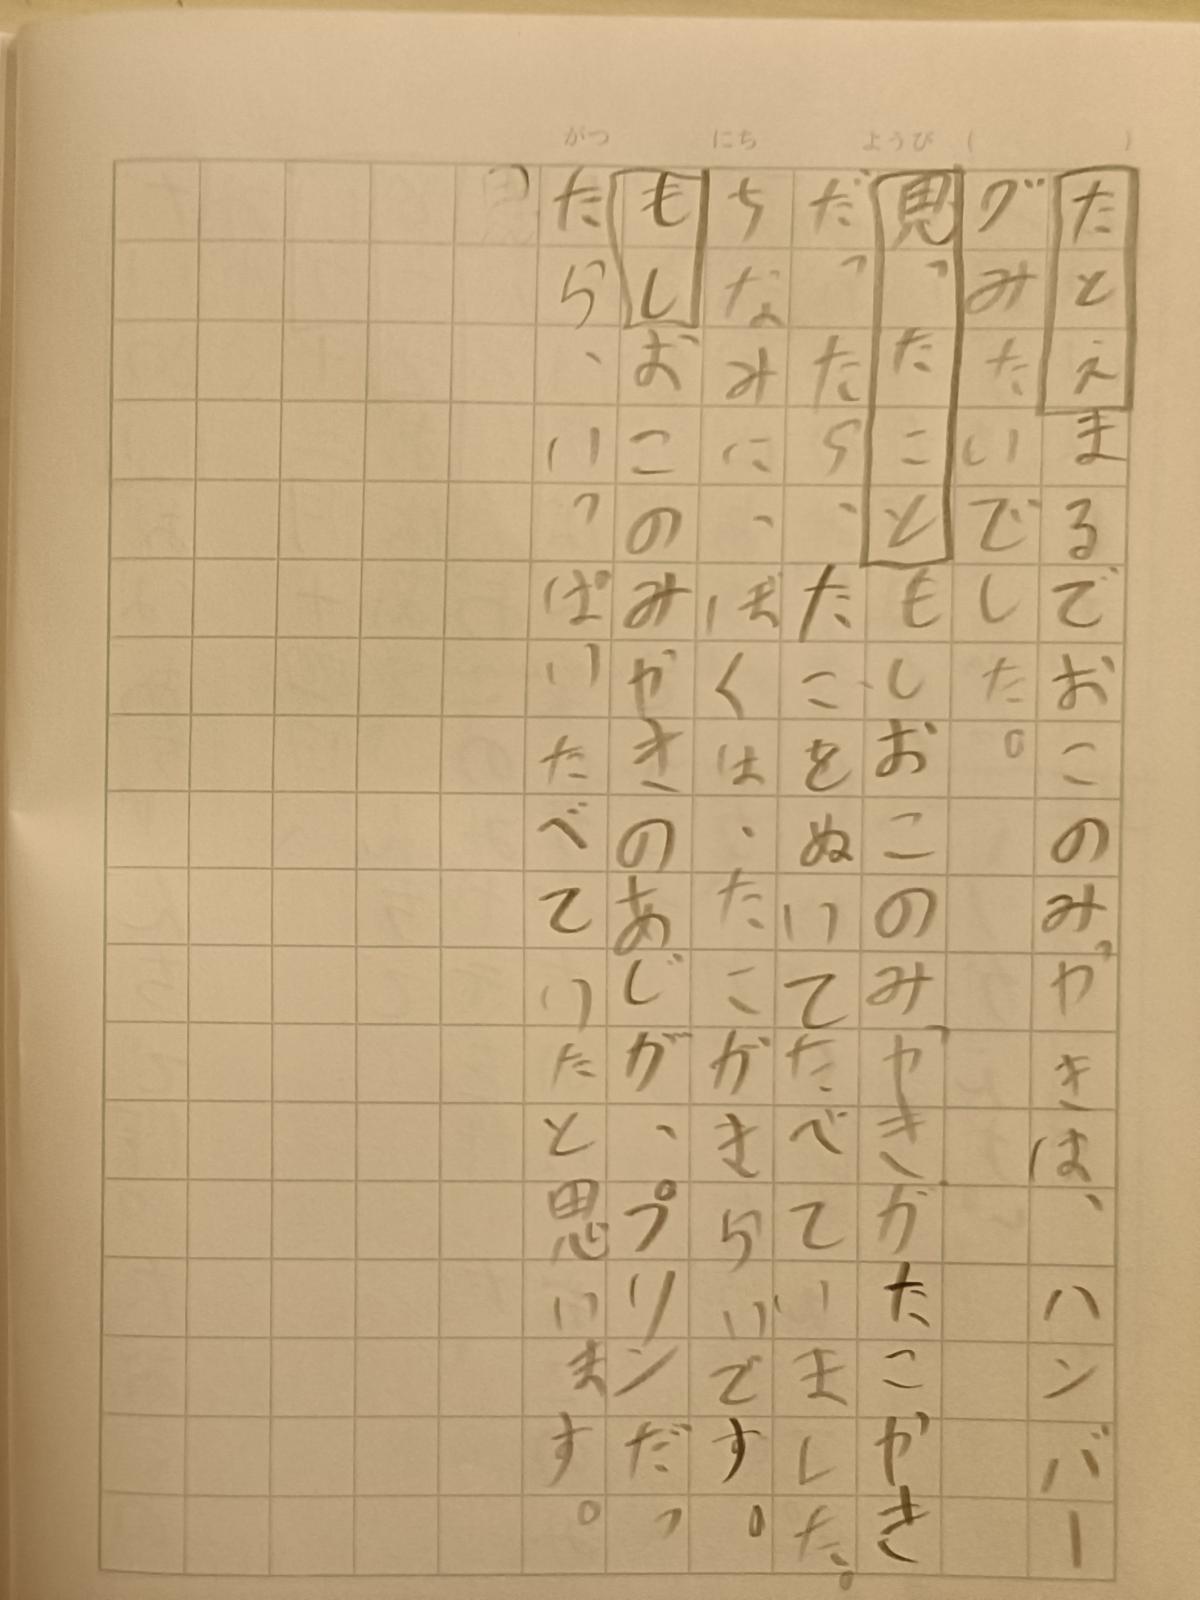 がつ にち ようび ( )
たとえまるでおこのみやきは、ハンバー
グみたいでした。
思ったこともしおこのみやきがたこやき
だったら、たこをぬいてたべていました。
ちなみに、ぼくは、たこがきらいです。
もしおこのみやきのあじが、プリンだっ
たら、いっぱいたべていたと思います。